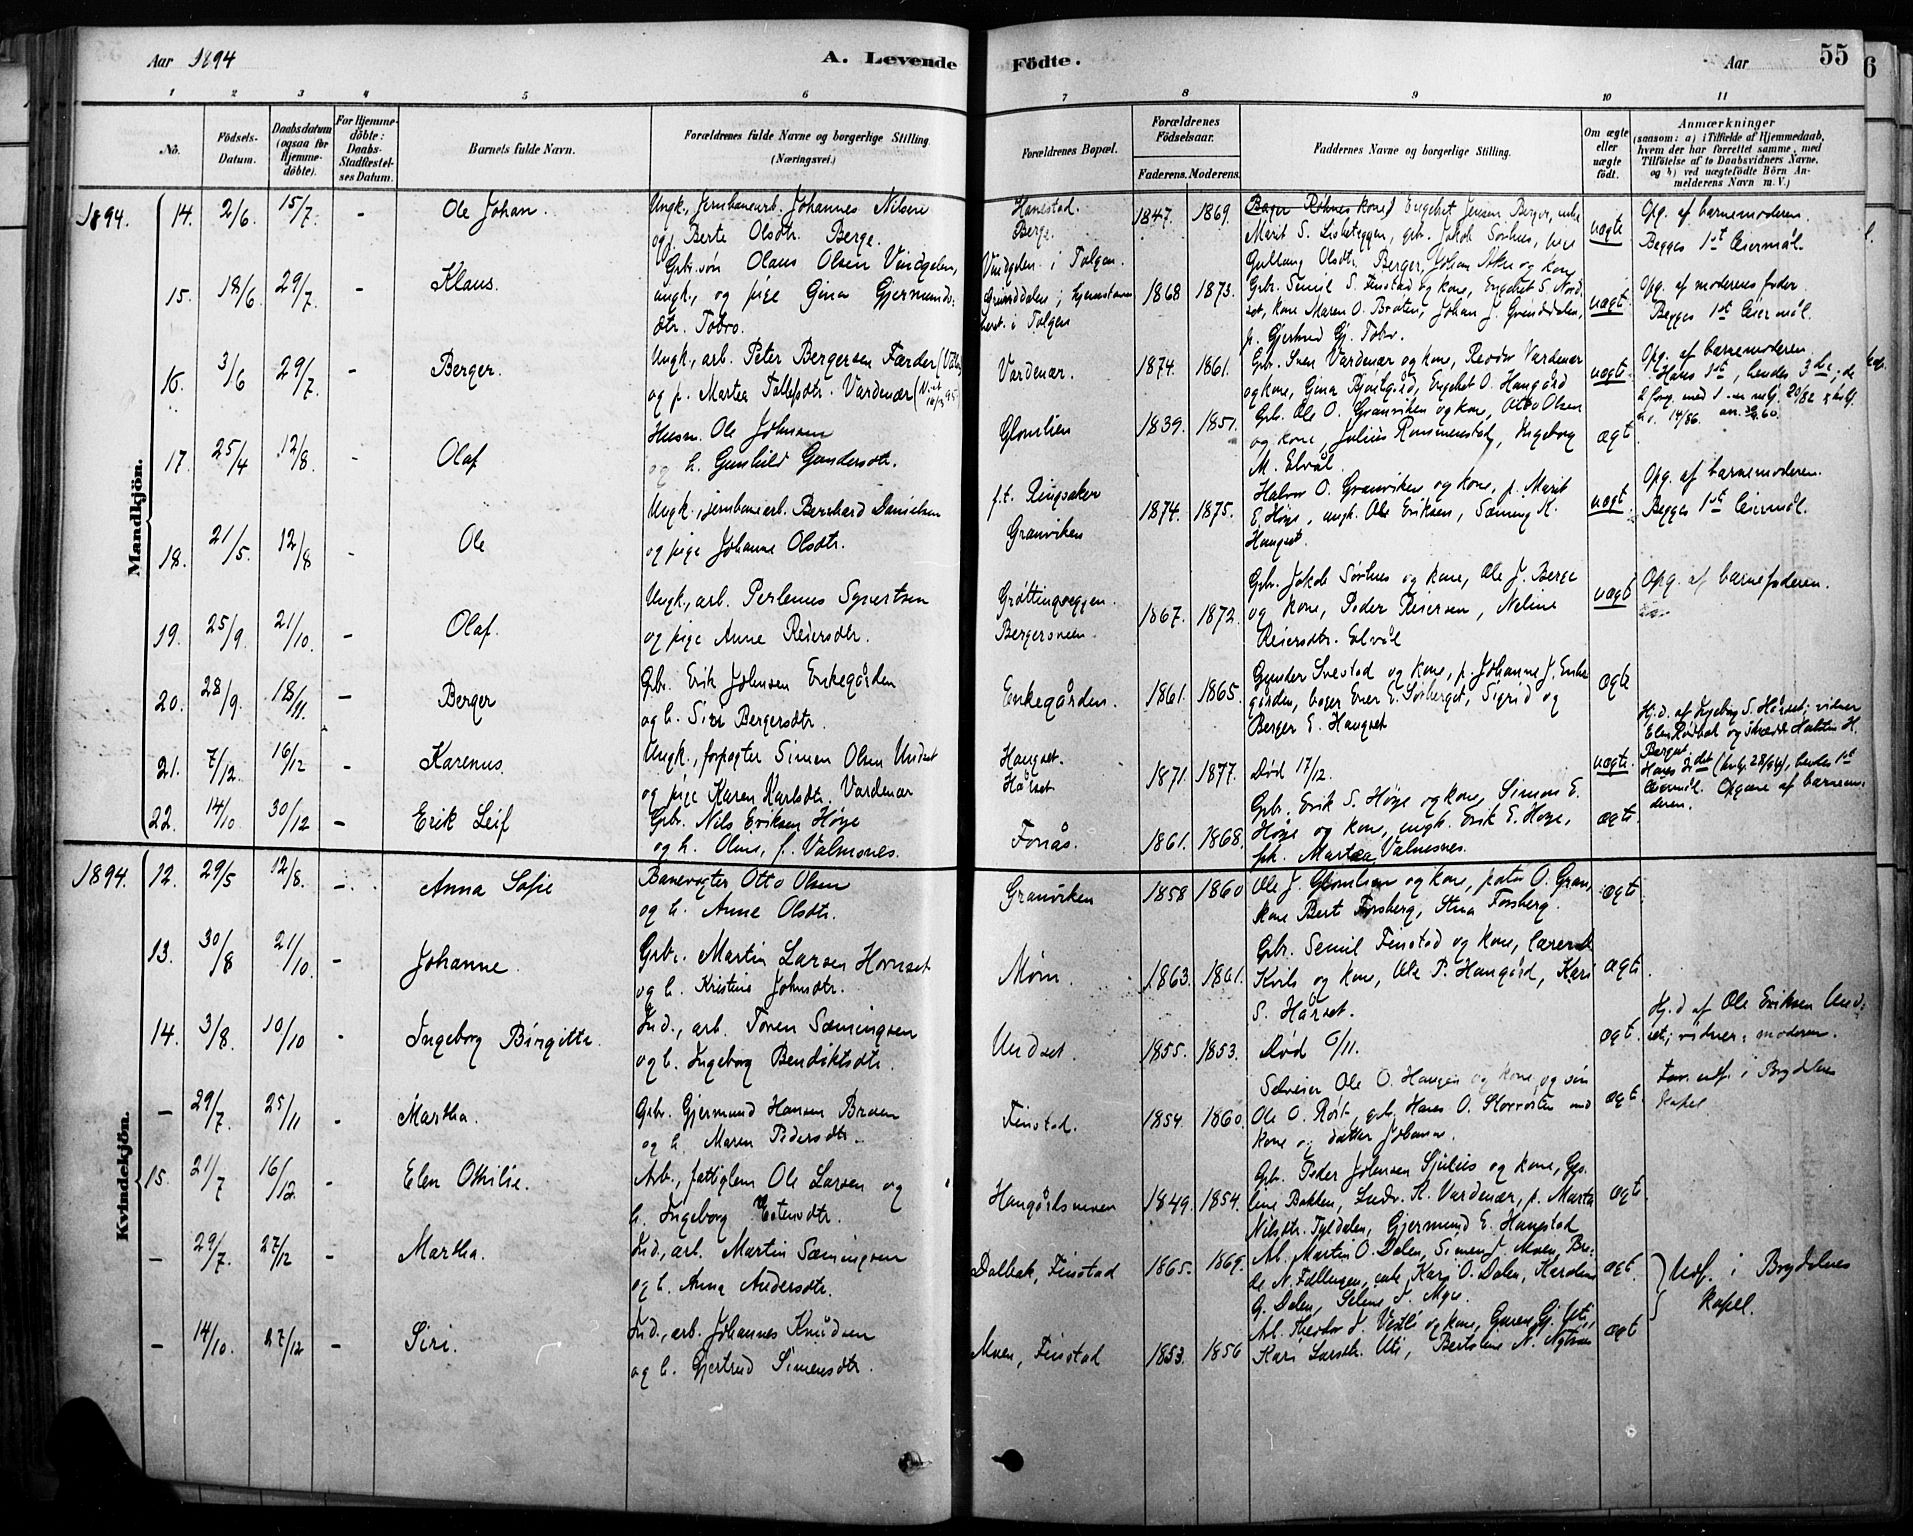 Aar 1894
A. Levende
Födte.
Aar
55
6
1 2 3 4 5 6 7 8 9 10 11
No.
Födsels-
Datum.
Daabsdatum
(ogsaa for
Hjemme-
döbte).
For Hjemme-
döbte:
Daabs-
Stadfæstel-
ses Datum.
Barnets fulde Navn.
Forældrenes fulde Navne og borgerlige Stilling
(Næringsvei.)
Forældrenes Bopæl.
Forældrenes
Födselsaar.
Faderens. Moderens.
Faddernes Navne og borgerlige Stilling.
Om ægte
eller
uægte
født.
Anmærkninger
(saasom: a) i Tilfælde af Hjemmedaab,
hvem der har forrettet samme, med
Tilföielse af to Daabsvidners Navne,
og b) ved uægtefödte Börn An-
melderens Navn m. V.)
Mandkjön.
1894. 14. 2/6 15/7. - Ole Johan.
Ungk., Jernbanearb. Johannes Nilsen
og p. Berte Olsdtr. Berge.
Hanestad.
Berge
1847. 1869.
uægte
Opg. af barnemoderen.
Begges 1st Leiermål.
15. 18/6. 29/7. - Klaus.
Grbr. søn Olaus Olsen Vindgelen,
ungk., og pige Gina Gjermunds-
dtr. Tobro.
Vindgelen i Tolgen.
i Tolgen
1868 1873.
Grb. Semil S. Finstad og kone, Engebet S. Nord
set, kone Maren O. Bråten, Johan J. Grinddalen,
p. Gjertrud Gj. Tobro.
uægte
Opg. af moderens fader.
Begges 1st Leiermål.
16. 3/6 29/7. - Berger.
Ungk., arb. Peter Bergersen Færder
og p. Martea Tollefsdtr. Vardenær
Vardenær.
1874. 1861.
Grb. Sven Vardenær og kone, Vardenær
og kone, Gina Engebet O. Haugård
uægte
Opg. af barnemoderen
Hans 1st, hendes 3de; de
17. 25/4 12/8. - Olaf
Husm. Ole Johnsen
og h. Gunhild Gundersdtr.
Glomlien
1839. 1851.
Grb. Ole O. Granviken og kone, Otto Olsen
og kone, Julius Ingeborg
M. Elvål.
ægte
18. 21/5. 12/8 - Ole
Ungk., jernbanearb. Bernhard Danielsen
og pige Johanne Olsdtr.
f.t. Ringsaker
Granviken
1874. 1875.
Halvor O. Granviken og kone, p. Marit
E. Høye, ungk. Ole Eriksen, Sæming K.
Haugset.
uægt.
Opg. af barnemoderen.
Begges 1st Leiermål.
19. 25/9. 21/10. - Olaf.
Ungk., arb. Perlenus Syvertsen
og pige Anne Reiersdtr.
Grøttingsveggen.
Bergersveen.
1867. 1872.
Grb. Jakob Sørhus og kone, Ole J. Berge
og kone, Peder Reiersen, Neline
Reiersdtr. Elvål
uægt
Opg. af barnefaderen.
20. 28/9. 18/11. - Berger
Grb. Erik Johnsen Enkegården
og h. Siri Bergersdtr.
Enkegården.
1861. 1865.
Gunder Svestad og kone, p. Johanne J. Enke
gården, bager Ener E. Sørberget, Sigrid og
Berger E. Haugset
ægte
21. 7/12. 16/12 - Karenus.
Ungk., forpagter Simen Olsen Undset
og pige Karen Karlsdtr. Vardenær
Haugset.
Hårset
1871. 1877.
Død 17/12.
uægte.
Hj.d. af Ingeborg S. Hårset; vidner
Elen Rødbak og skrædd. Halsten H.
Berget.
Hans 2det (28/94), hendes 1st
Leiermål. Opgave af barnemo-
deren.
22. 14/10. 30/12 - Erik Leif
Grb. Nils Eriksen Høye
og h. Oline, f. Valmsnes.
Fonås.
1861. 1868.
Grb. Erik S. Høye og kone, Simon E.
Høye og kone, ungk. Erik E. Høye,
pk. Martea Valmesnes.
ægte
Kvindekjön.
1894. 12. 29/5 12/8. - Anna Sofie
Banevogter Otto Olsen
og h. Anne Olsdtr.
Granviken
1858 1860
Ole J. Glomlien og kone,
kone Bert Forsberg, Stina Forsberg.
ægte
13. 30/8 21/10. - Johanne.
Grbr. Martin Larsen Hornset
og h. Kristine Johnsdtr.
Moen.
1863. 1861.
Grbr. Semil Finstad og kone, lærer
og kone, Ole P. Haugård, Kari
S. Hårset.
ægte
14. 3/8. 10/10 - Ingeborg Birgitte.
Ind., arb. Toren Sæmingsen
og h. Ingeborg Bendiktsdtr.
Undset.
1855. 1853.
Død 6/11.
ægt.
Hj.d af Ole Eriksen Und-
set; vidner: moderen.
- 29/7. 25/11 - Martha.
Grbr. Gjermund Hansen Braen
og h. Maren Pedersdtr.
Finstad.
1854 1860.
Selveier Ole O. Haugen og kone og søn
Ole O. Røst, grb. Hans O. Storrøsten med
kone og datter Johanna.
ægt.
i Brydalens
Kapel
15. 21/7 16/12 - Elen Othilie.
Arb., fattiglem Ole Larsen og
h. Ingeborg Estensdtr.
Haugårdsneven
1849. 1854.
Grb. Peder Johnsen Sjulius og kone,
line Bakken, K. Vardenær, p. Marta
Nilsdtr. Tyldalen, Gjermund E. Hanestad
ægt
- 29/7. 27/12 - Martha.
Ind., arb. Martin Sæmingsen
og h. Anna Andersdtr.
Dalbak, Finstad
1865. 1869.
Arb. Martin O. Dalen, Simen J. Moen,
N. Kari O. Dalen, Karoline
G. Dalen, Seline
ægt.
Udf. i Brydalens
Kapel.
- 14/10. 27/12 - Siri.
Ind., arb. Johannes Knudsen
og h. Gjertrud Simensdtr.
Moen, Finstad
1853. 1856
Arb. Theodor J. og kone,
Kari Larsdtr. Uti,
ægt